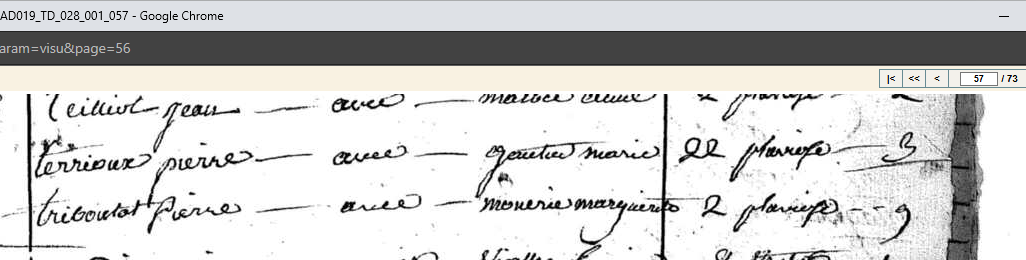 AD019_TD_028_001_057 - Google Chrome
aram=visu&page=56
|< << < 57 / 73
Teilliot jean — avec — 2 pluviose - 2
terrioux pierre — avec — gautier marie 22 pluviose — 3
triboutot pierre — avec — monerie marguerite 2 pluviose - - 9